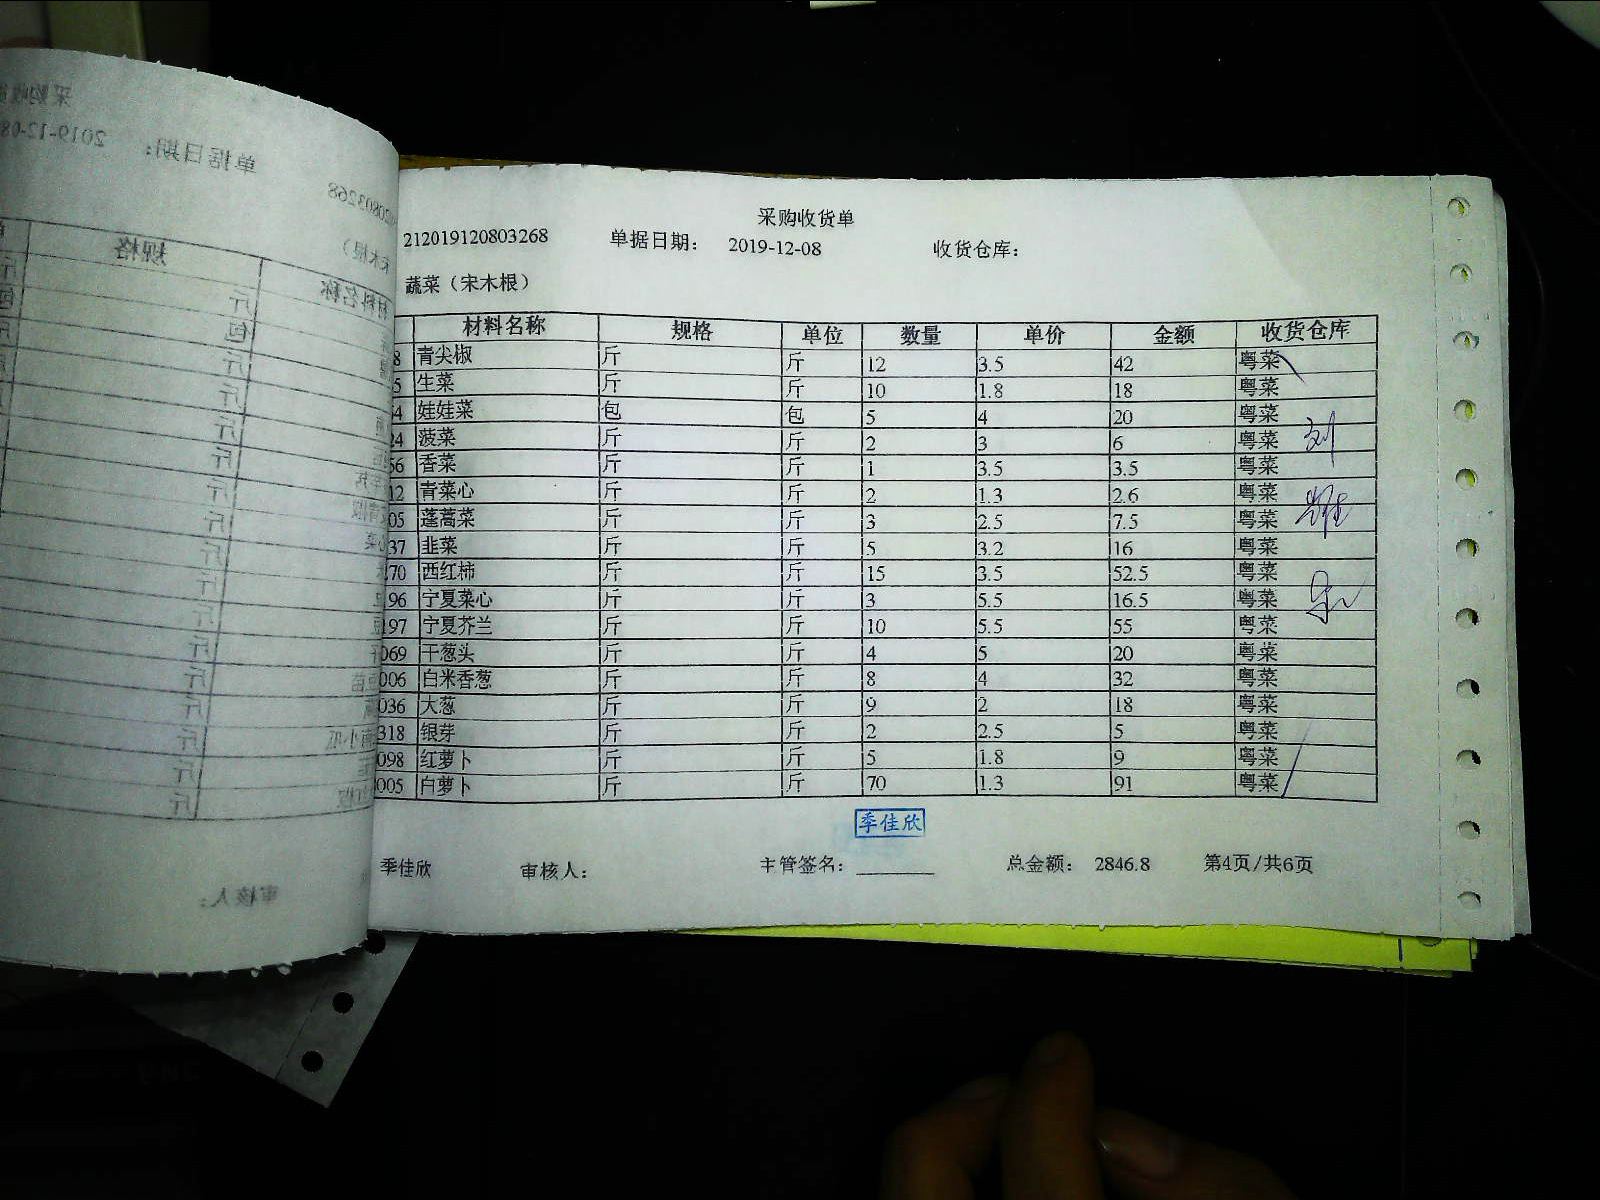 采购收货单
212019120803268 单据日期： 2019-12-08 收货仓库：
蔬菜（宋木根）
材料名称 规格 单位 数量 单价 金额 收货仓库
8 青尖椒 斤 斤 12 3.5 42 粤菜
5 生菜 斤 斤 10 1.8 18 粤菜
54 娃娃菜 包 包 5 4 20 粤菜
24 菠菜 斤 斤 2 3 6 粤菜
56 香菜 斤 斤 1 3.5 3.5 粤菜
12 青菜心 斤 斤 2 1.3 2.6 粤菜
05 蓬蒿菜 斤 斤 3 2.5 7.5 粤菜
37 韭菜 斤 斤 5 3.2 16 粤菜
70 西红柿 斤 斤 15 3.5 52.5 粤菜
196 宁夏菜心 斤 斤 3 5.5 16.5 粤菜
197 宁夏芥兰 斤 斤 10 5.5 55 粤菜
069 干葱头 斤 斤 4 5 20 粤菜
006 白米香葱 斤 斤 8 4 32 粤菜
036 大葱 斤 斤 9 2 18 粤菜
318 银芽 斤 斤 2 2.5 5 粤菜
098 红萝卜 斤 斤 5 1.8 9 粤菜
005 白萝卜 斤 斤 70 1.3 91 粤菜
季佳欣
季佳欣 审核人： 主管签名： 总金额： 2846.8 第4页/共6页